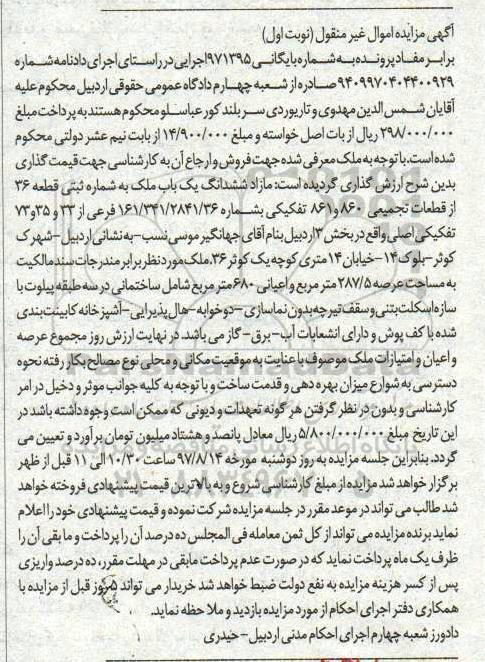 آگهی مزایده اموال غیر منقول (نوبت اول)
برابر مفاد پرونده به شماره بایگانی ۹۷۱۳۹۵ اجرایی در راستای اجرای دادنامه شماره
۹۴۰۹۹۷۰۴۰۴۴۰۰۹۲۹ صادره از شعبه چهارم دادگاه عمومی حقوقی اردبیل محکوم علیه
آقایان شمس الدین مهدوی و تاریوردی سربلند کورعباسلو محکوم هستند به پرداخت مبلغ
۲۹۸/۰۰۰/۰۰۰ ریال از بات اصل خواسته و مبلغ ۱۴/۹۰۰/۰۰۰ از بابت نیم عشر دولتی محکوم
شده است. با توجه به ملک معرفی شده جهت فروش و ارجاع آن به کارشناسی جهت قیمت گذاری
بدین شرح ارزش گذاری گردیده است: مازاد ششدانگ یک باب ملک به شماره ثبتی قطعه ۳۶
از قطعات تجمیعی ۸۶۰ و ۸۶۱ تفکیکی بشماره ۱۶۱/۳۴۱/۲۸۴۱/۳۶ فرعی از ۳۳ و ۳۵ و ۷۳
تفکیکی اصلی واقع در بخش ۳ اردبیل بنام آقای جهانگیر موسی نسب-به نشانی اردبیل-شهرک
کوثر-بلوک ۱۴-خیابان ۱۴ متری کوچه یک کوثر ۳۶. ملک مورد نظر برابر مندرجات سند مالکیت
به مساحت عرصه ۲۸۷/۵ متر مربع و اعیانی ۶۸۰ متر مربع شامل ساختمانی در سه طبقه پیلوت با
سازه اسکلت بتنی و سقف تیرچه بدون نماسازی-دوخوابه-هال پذیرایی-آشپزخانه کابینت بندی
شده با کف پوش و دارای انشعابات آب-برق-گاز می باشد. در نهایت ارزش روز مجموع عرصه
و اعیان و امتیازات ملک موصوف با عنایت به موقعیت مکانی و محلی نوع مصالح بکار رفته نحوه
دسترسی به شوارع میزان بهره دهی و قدمت ساخت و با توجه به کلیه جوانب موثر و دخیل در امر
کارشناسی و بدون در نظر گرفتن هر گونه تعهدات و دیونی که ممکن است وجوه داشته باشد در
این تاریخ مبلغ ۵/۸۰۰/۰۰۰/۰۰۰ ریال معادل پانصد و هشتاد میلیون تومان برآورد و تعیین می
گردد. بنابراین جلسه مزایده به روز دوشنبه مورخه ۹۷/۸/۱۴ ساعت ۱۰/۳۰ الی ۱۱ قبل از ظهر
برگزار خواهد شد مزایده از مبلغ کارشناسی شروع و به بالاترین قیمت پیشنهادی فروخته خواهد
شد طالب می تواند در موعد مقرر در جلسه مزایده شرکت نموده و قیمت پیشنهادی خود را اعلام
نماید برنده مزایده می تواند از کل ثمن معامله فی المجلس ده درصد آن را پرداخت و ما بقی آن را
ظرف یک ماه پرداخت نماید که در صورت عدم پرداخت مابقی در مهلت مقرر، ده درصد واریزی
پس از کسر هزینه مزایده به نفع دولت ضبط خواهد شد خریدار می تواند ۵ روز قبل از مزایده با
همکاری دفتر اجرای احکام از مورد مزایده بازدید و ملاحظه نماید.
دادورز شعبه چهارم اجرای احکام مدنی اردبیل-حیدری